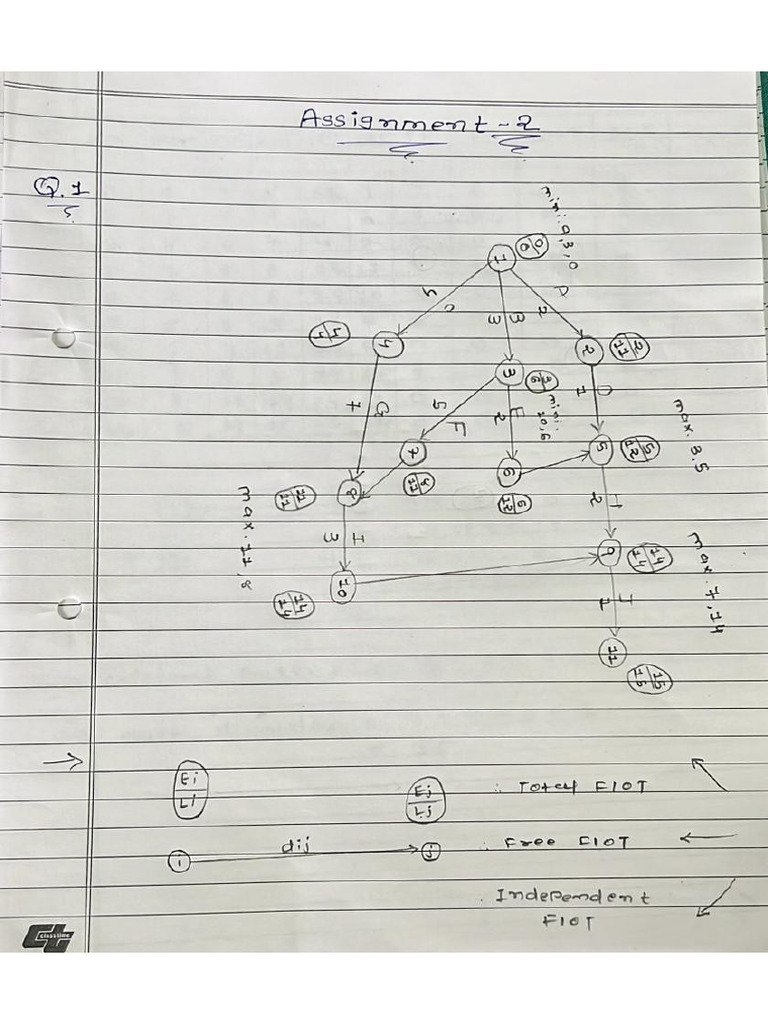 Assignment-2
Q.1
mini: 9,3,0
0
0
1
A
2
B
3
C
4
2
2
11
3
3
6
4
4
4
mini:
10,6
D
1
E
2
F
5
G
7
max. 3,5
5
5
12
6
6
12
7
8
11
8
11
11
H
2
I
3
max. 11,8
max. 7,14
9
14
14
10
14
14
J
1
11
15
15
Ei
Li
Ej
Lj
∴ Total FlOT
i
dij
j
∴ Free FlOT
Independent
FlOT
classtime